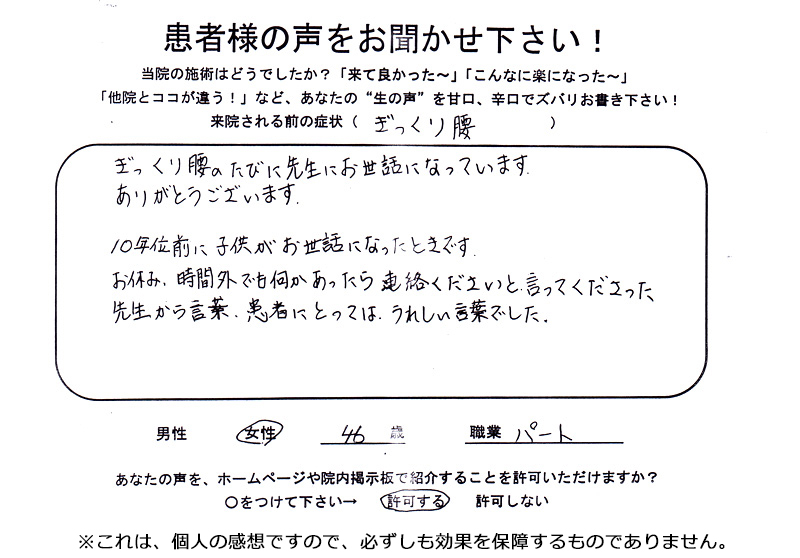 患者様の声をお聞かせ下さい！
当院の施術はどうでしたか？「来て良かった～」「こんなに楽になった～」
「他院とココが違う！」など、あなたの“生の声”を甘口、辛口でズバリお書き下さい！
来院される前の症状（ ぎっくり腰 ）
ぎっくり腰のたびに先生にお世話になっています.
ありがとうございます.
10年位前に子供がお世話になったときです.
お休み、時間外でも何かあったら連絡くださいと言ってくださった
先生から言葉、患者にとっては、うれしい言葉でした.
男性 女性 46 歳 職業 パート
あなたの声を、ホームページや院内掲示板で紹介することを許可いただけますか？
○をつけて下さい→ 許可する 許可しない
※これは、個人の感想ですので、必ずしも効果を保障するものでありません。